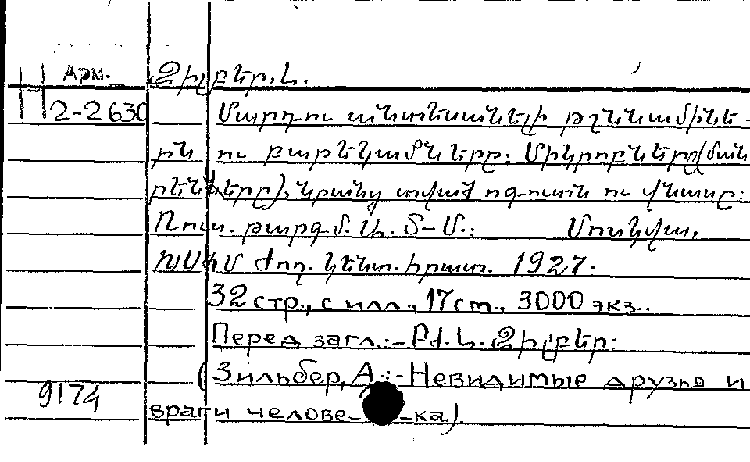 Арм. Զիլբեր, Լ.
Н 2-2630 Մարդու անտեսանելի թշնամինե-
րն ու բարեկամները. Միկրոբները (ման
րէները), նրանց տված օգուտն ու վնասը:
Ռուս. թարգմ. Ա. Տ-Մ.: Մոսկվա,
ԽՍՀՄ Ժող. Կենտ. հրատ. 1927.
32 стр., с илл., 17 ст., 3000 экз.
Перед загл.:- Բժ. Լ. Զիլբեր:
(Зильбер, А.:- Невидимые друзья и
9174 враги челове- -ка)